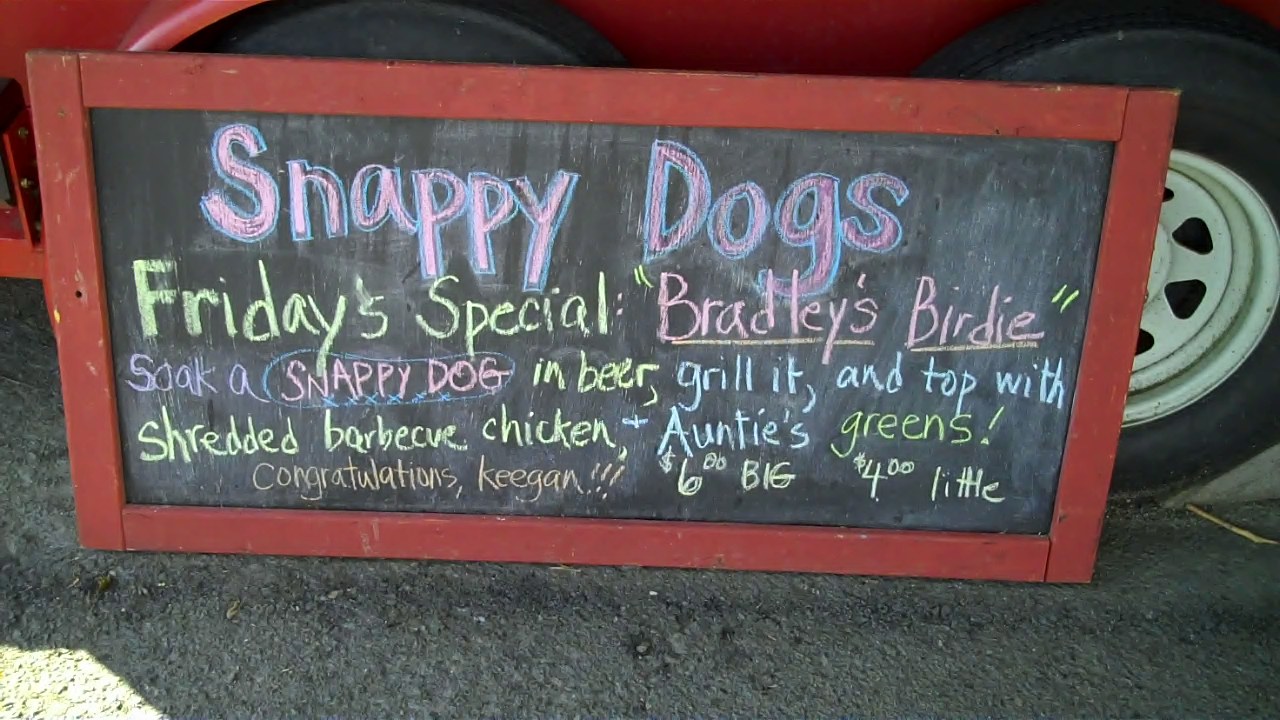 Snappy Dogs
Friday's Special: "Bradley's Birdie"
Soak a SNAPPY DOG in beer, grill it, and top with
shredded barbecue chicken, + Auntie's greens!
Congratulations, Keegan!!! $6.00 BIG $4.00 little